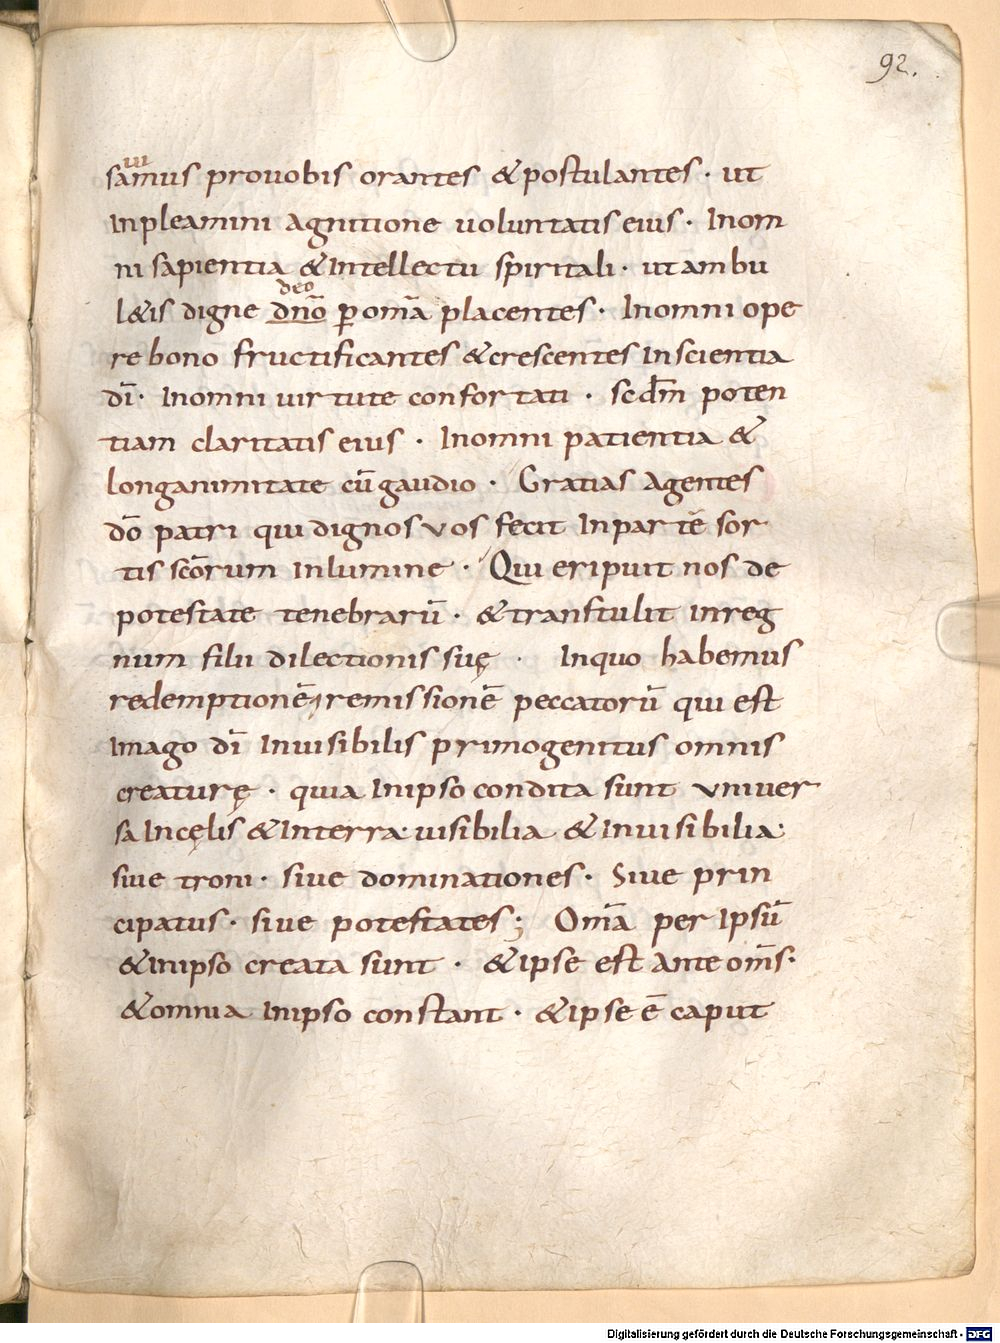 92.
samus prouobis orantes &postulantes · ut
inpleamini agnitione uoluntatis eius · Inom
ni sapientia &intellectu spiritali · ut ambu
deo
l&is digne dn̄o ꝑ omā placentes · Inomni ope
re bono fructificantes &crescentes inscientia
dī · Inomni uirtute confortati · scdm̄ poten
tiam claritatis eius · Inomni patientia &
longanimitate cū gaudio · Gratias agentes
dō patri qui dignos vos fecit inpartē sor
tis scōrum inlumine · Qui eripuit nos de
potestate tenebrarū · &transtulit inreg
num filii dilectionis suę · Inquo habemus
redemptionē remissionē peccatorū qui est
Imago dī inuisibilis primogenitus omnis
creaturę · quia inipso condita sunt vniuer
sa incęlis &interra · uisibilia &inuisibilia ·
siue troni · siue dominationes · Siue prin
cipatus · siue potestates ; Omā per ipsū
&inipso creata sunt · &ipse est ante om̄s ·
&omnia inipso constant · &ipse ē caput
Digitalisierung gefördert durch die Deutsche Forschungsgemeinschaft - DFG